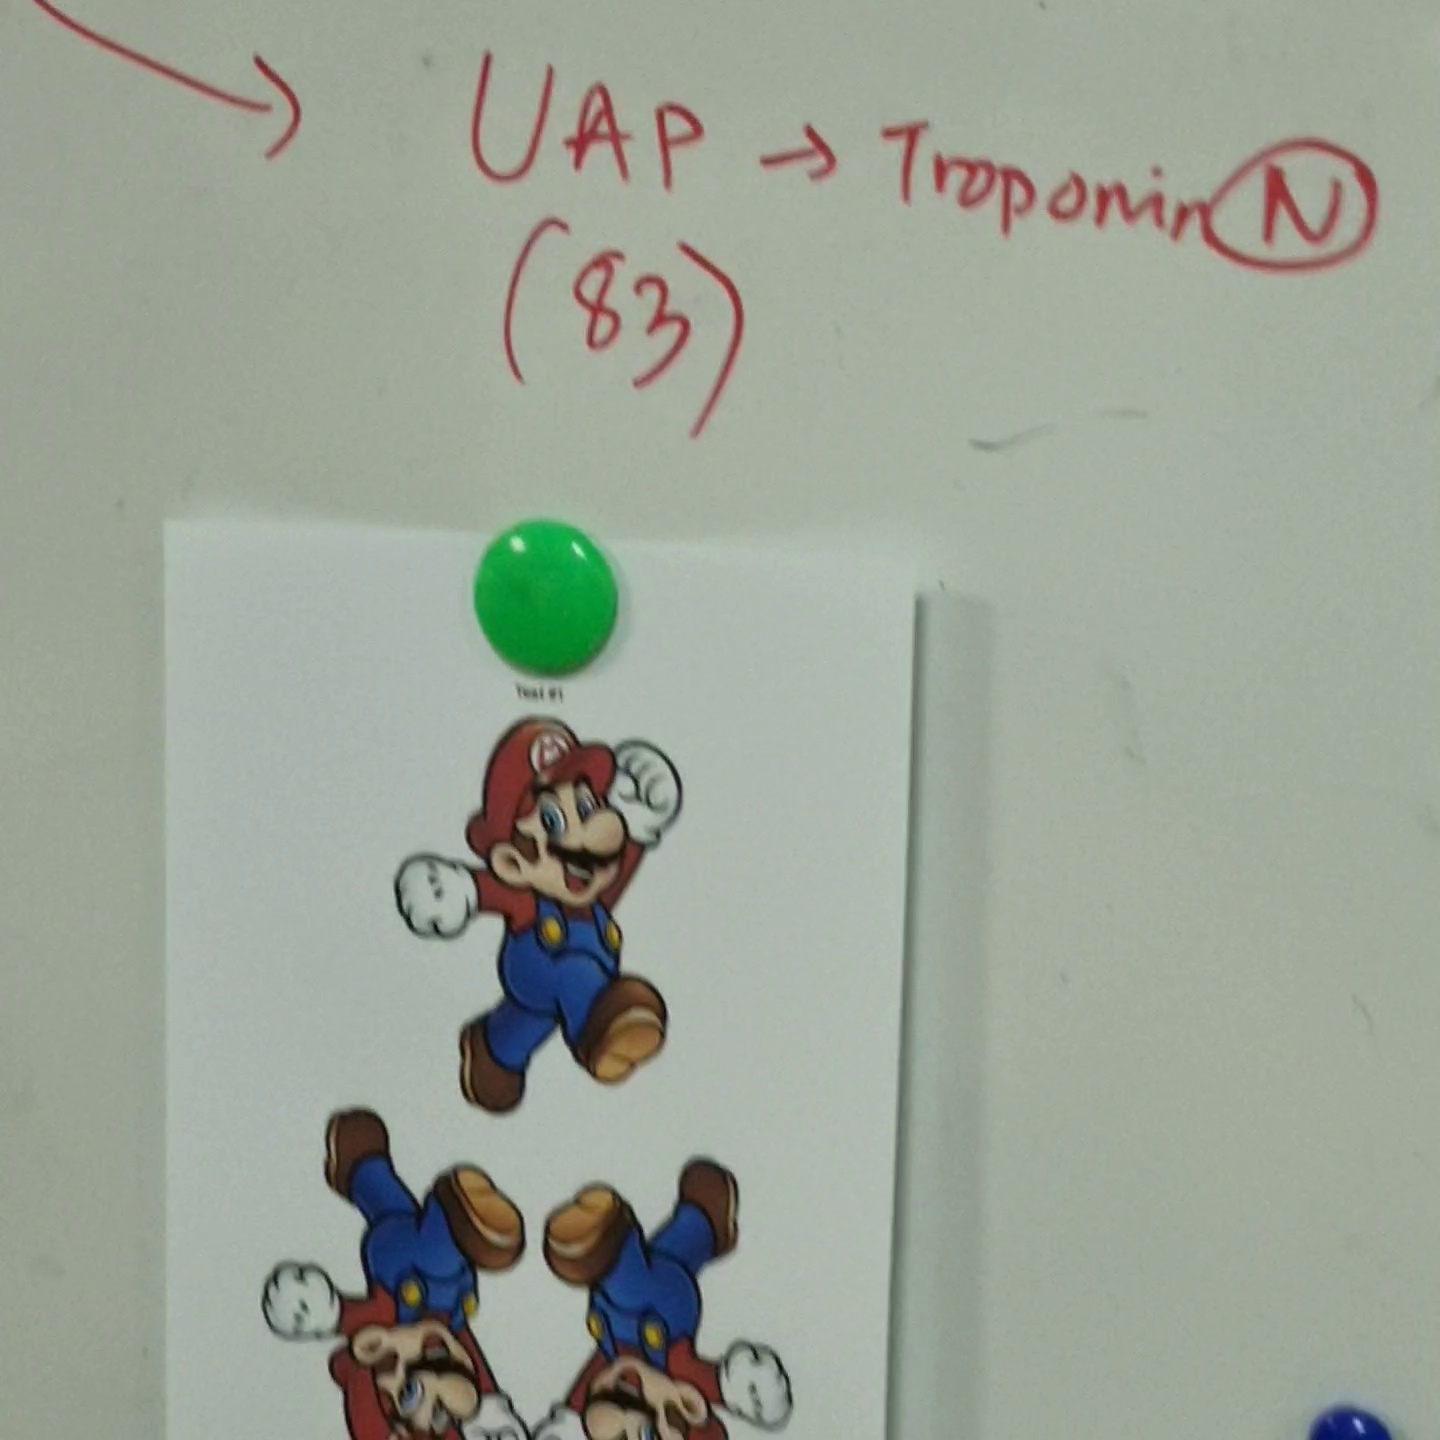 UAP → Troponin N
(83)
Test #1
M